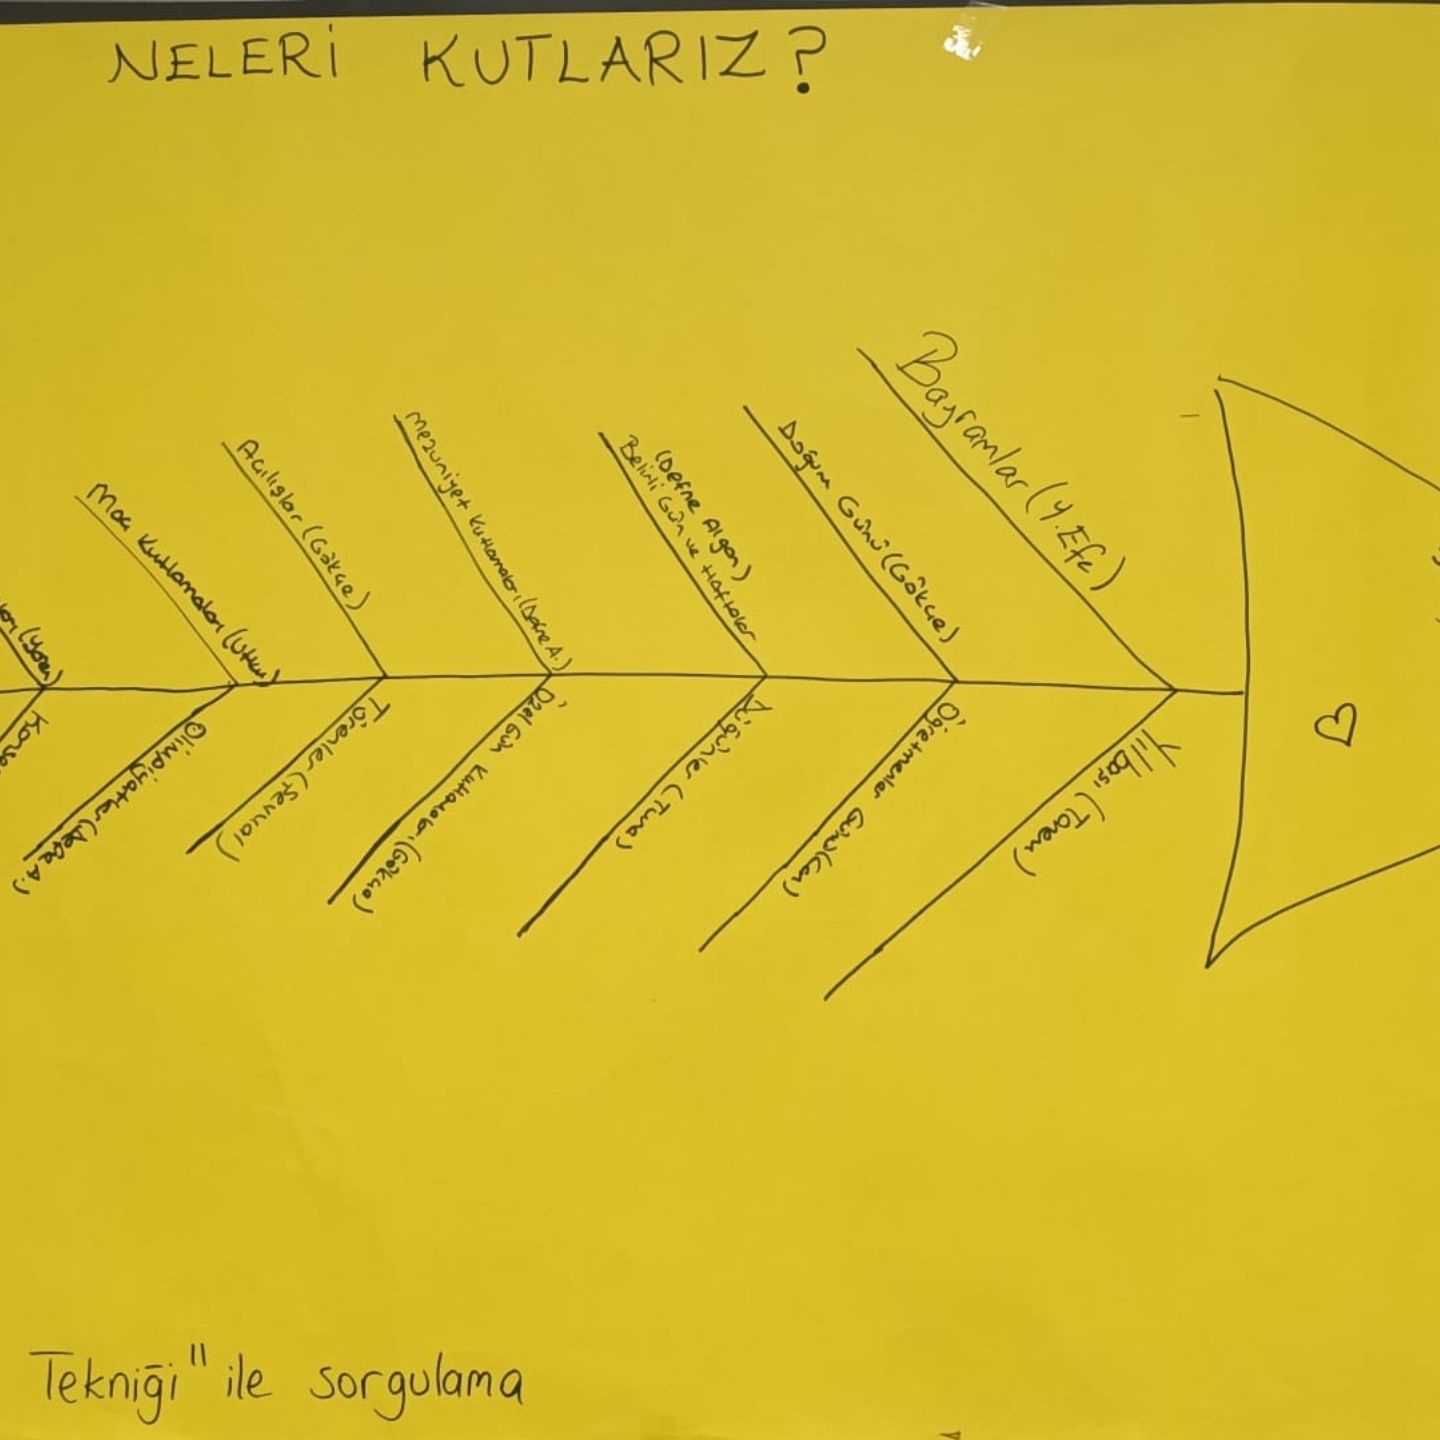 NELERİ KUTLARIZ?
Bayramlar (Y.Efe)
Doğum Günü (Gökçe)
(Defne Algan)
Belirli Gün ve Haftalar
Mezuniyet Kutlamaları (Defne A.)
Açılışlar (Gökçe)
Maç Kutlamaları (Utku)
Yılbaşı (Taren)
Öğretmenler Günü (Can)
Düğünler (Tuna)
Özel Gün Kutlamaları (Gökçe)
Törenler (Sevval)
Olimpiyatlar (Defne A.)
Tekniği" ile sorgulama